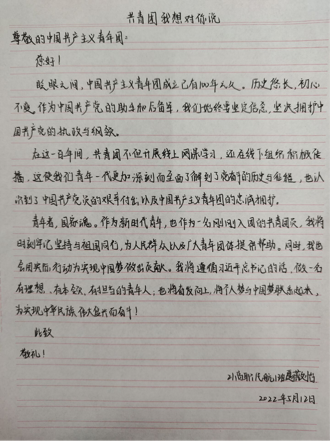 共青团我想对你说
尊敬的中国共产主义青年团:
您好!
眨眼之间,中国共产主义青年团成立已有100年之久。历史悠长,初心
不变。作为中国共产党的助手和后备军,我们始终要坚定信念,坚决拥护中
国共产党的执政与纲领。
在这一百年间,共青团不但开展线上网课学习,还在线下组织
这使我们青年一代更加深刻而全面了解到了党的历史与
到了中国共产党员的艰辛付出以及中国共产主义青年团的忠诚拥护。
青年者,国家魂。作为新时代青年,也作为一名刚刚入团的共青团员,我将
时刻牢记坚持与祖国同行,为人民群众以及广大青年团体提供帮助。同时,我也
会用实际行动为实现中国梦做出贡献。我将遵循习近平总书记的话,做一名
有理想、有本领、有担当的青年人;也将奋发向上,将个人梦与中国梦联系起来,
为实现中华民族伟大复兴而奋斗!
此致
敬礼!
21高职民航1班
2022年5月12日